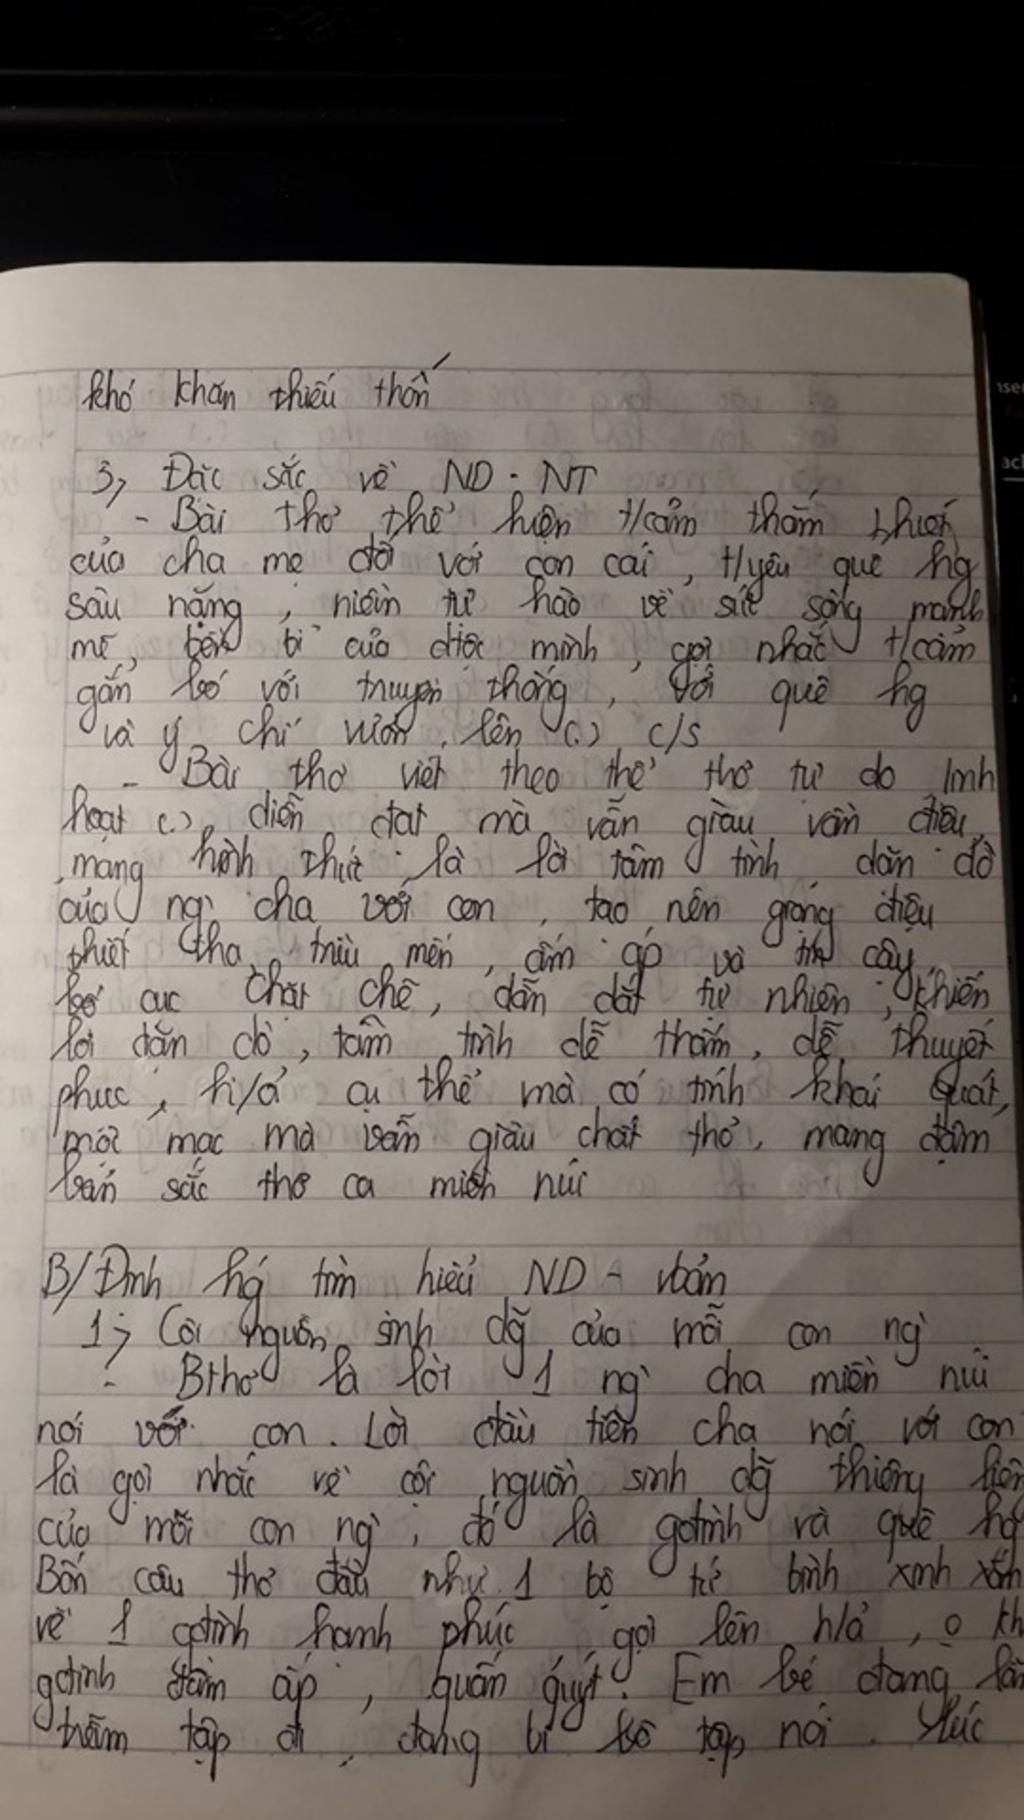 khó khăn thiếu thốn
3, Đặc sắc về ND - NT
- Bài thơ thể hiện t/cảm thắm thiết
của cha mẹ đối với con cái, t/yêu quê hg
sâu nặng, niềm tự hào về sức sống mạnh
mẽ, bền bỉ của dtộc mình, gợi nhắc t/cảm
gắn bó với truyền thống, với quê hg
và ý chí vươn lên (.) c/s
- Bài thơ viết theo thể thơ tự do linh
hoạt (.) diễn đạt mà vẫn giàu vần điệu,
mang hình thức là lời tâm tình dặn dò
của ng` cha với con, tạo nên giọng điệu
thiết tha, trìu mến, ấm áp và tin cậy,
bố cục chặt chẽ, dẫn dắt tự nhiên, khiến
lời dặn dò, tâm tình dễ thấm, dễ thuyết
phục, h/ả cụ thể mà có tính khái quát,
mộc mạc mà vẫn giàu chất thơ, mang đậm
bản sắc thơ ca miền núi
B/ Định hg tìm hiểu ND - vbản
1, Cội nguồn sinh dg của mỗi con ng`
- Bthơ là lời 1 ng` cha miền núi
nói với con. Lời đầu tiên cha nói với con
là gợi nhắc về cội nguồn sinh dg thiêng liêng
của mỗi con ng`, đó là gđình và quê hg
Bốn câu thơ đầu như 1 bộ tứ bình xinh xắn
về 1 gđình hạnh phúc gợi lên h/ả, o kh
gđình đầm ấp, quấn quýt. Em bé đang
tập đi, đang bi bô tập nói.